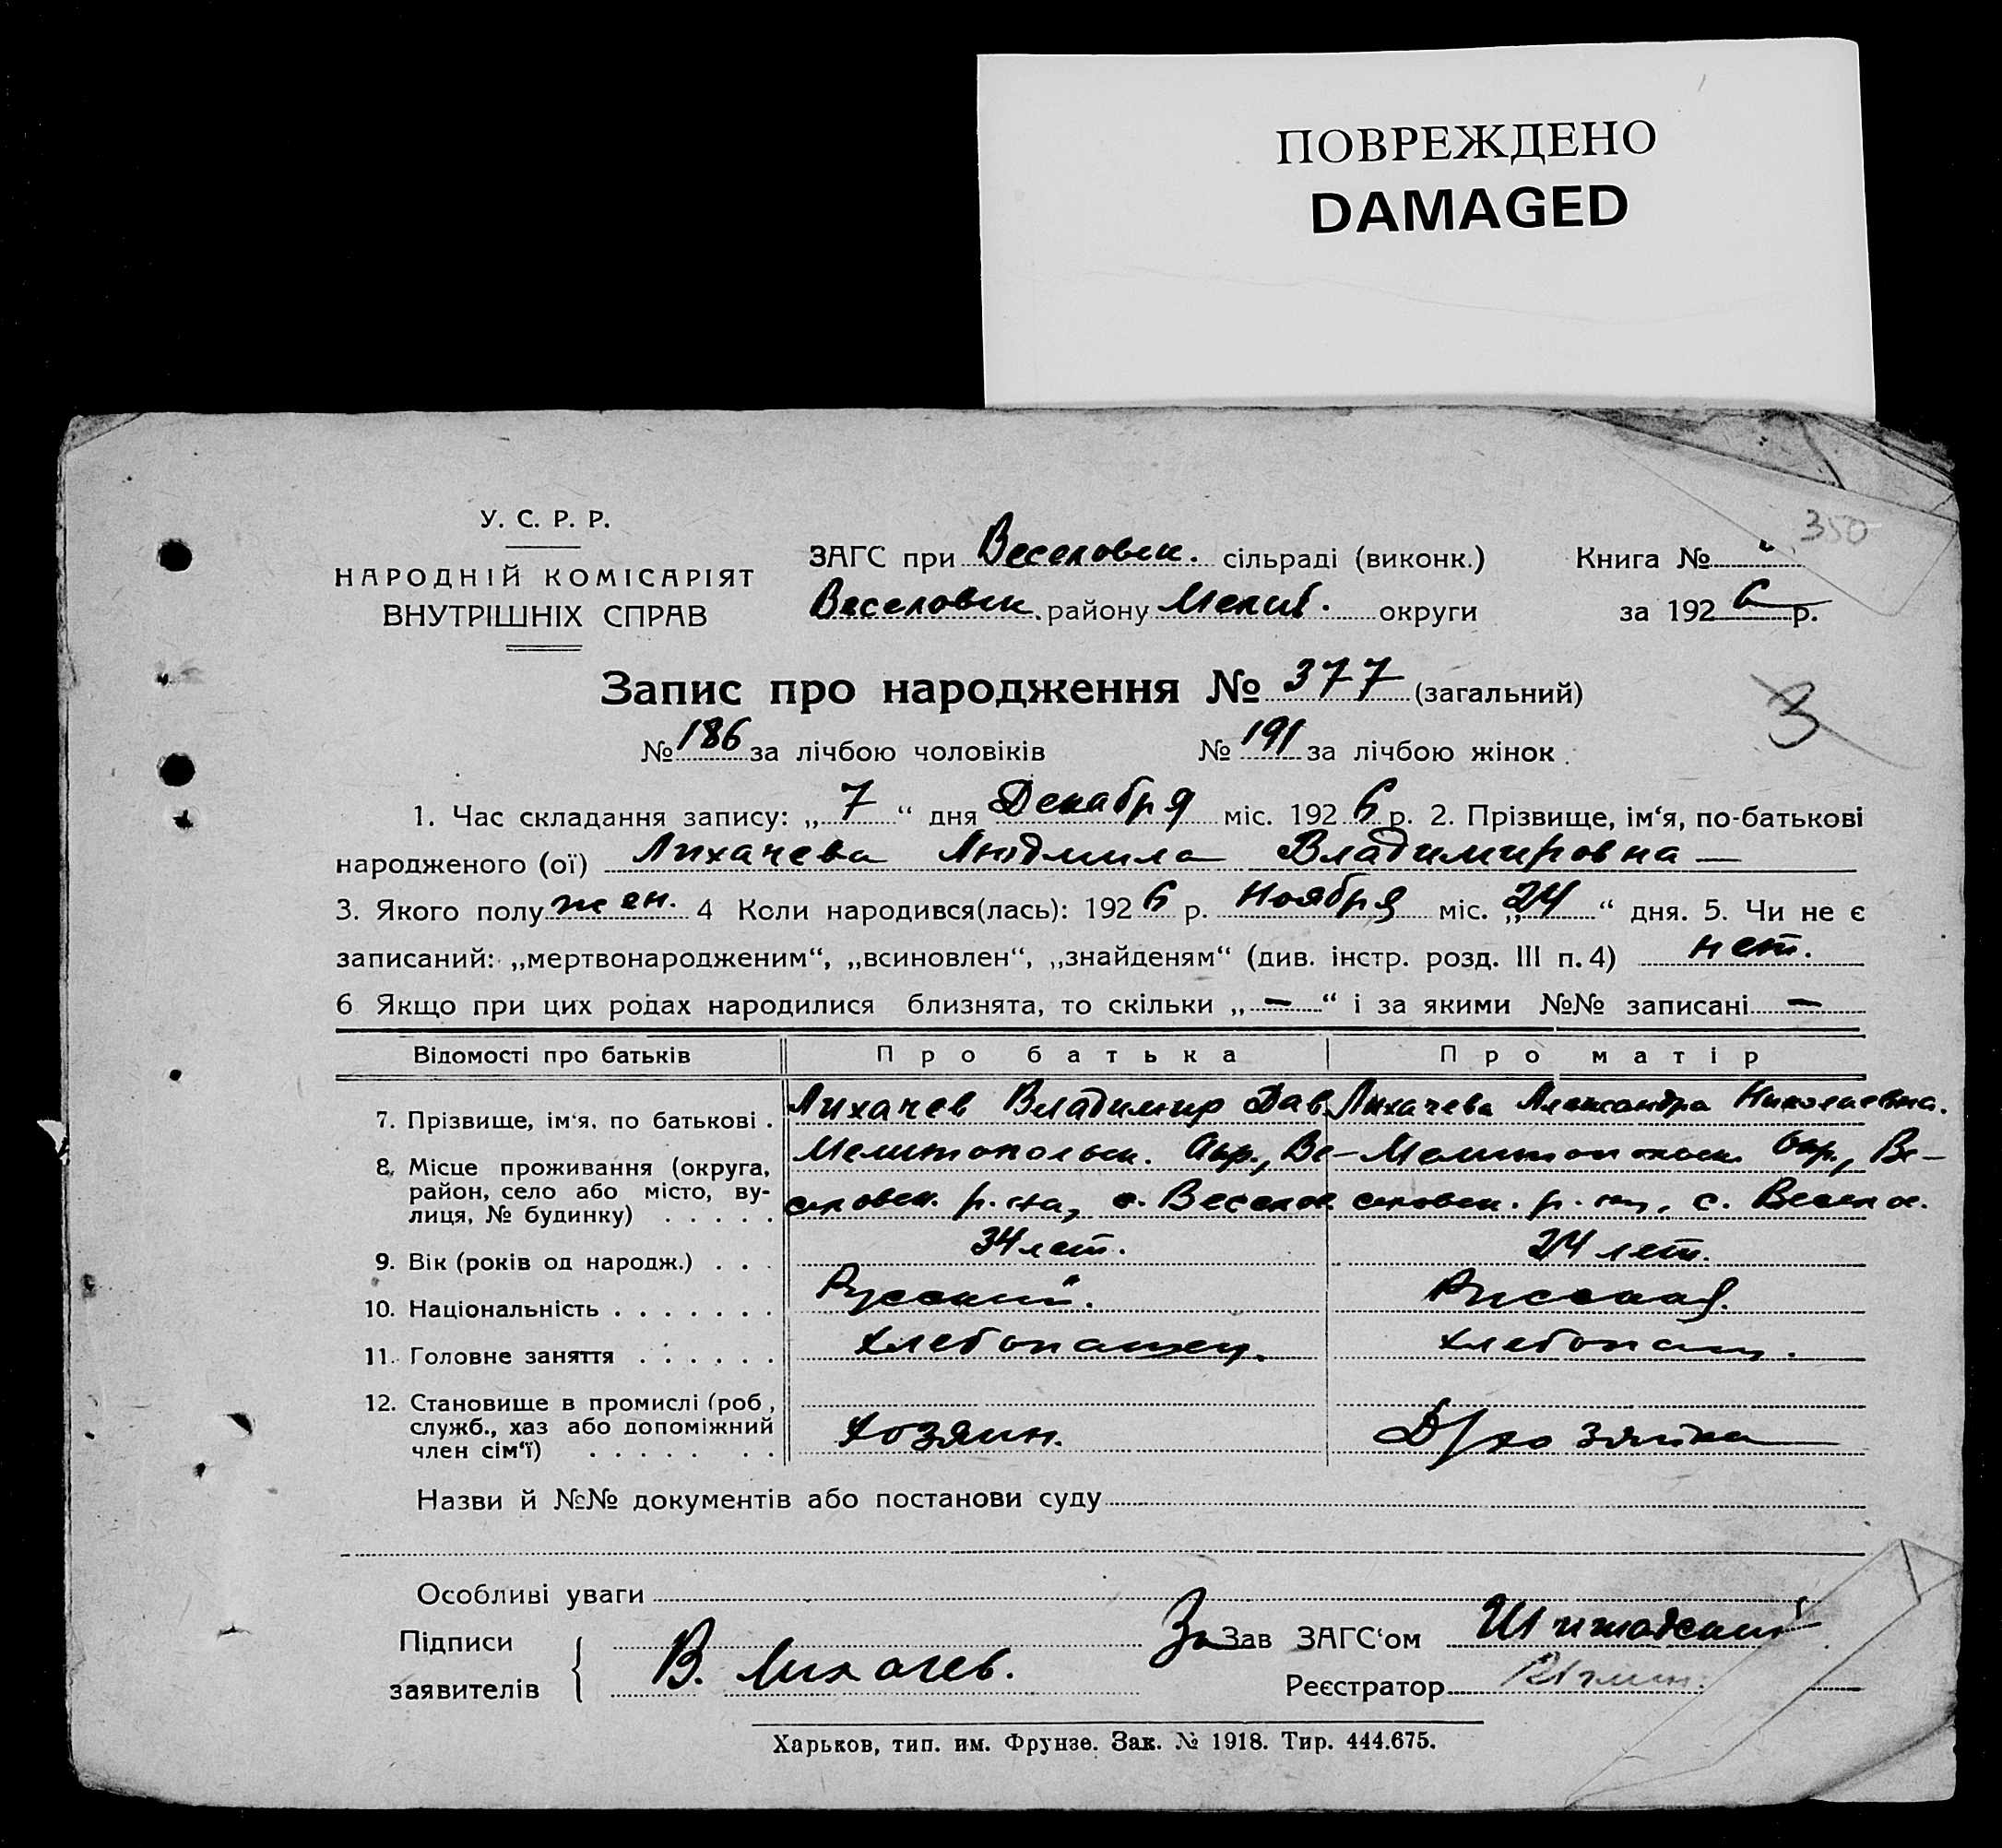 ПОВРЕЖДЕНО
DAMAGED
350
У. С. Р. Р.
НАРОДНІЙ КОМІСАРІЯТ
ВНУТРІШНІХ СПРАВ
ЗАГС при Веселовск. сільраді (виконк.) Книга №
Веселовск. району Мелит. округи за 1926 р.
Запис про народження № 377 (загальний)
3
№ 186 за лічбою чоловіків № 191 за лічбою жінок
1. Час складання запису: „ 7 “ дня Декабря міс. 1926 р. 2. Прізвище, ім‘я, по-батькові
народженого (ої) Лихачева Людмила Владимировна —
3. Якого полу жен. 4 Коли народився(лась): 1926 р. Ноября міс. „ 24 “ дня. 5. Чи не є
записаний: „мертвонародженим“, „всиновлен“, „знайденям“ (див. інстр. розд. III п. 4) нет.
6 Якщо при цих родах народилися близнята, то скільки „ — “ і за якими №№ записані —
Відомості про батьків Про батька Про матір
7. Прізвище, ім‘я, по батькові . Лихачев Владимир Дав. Лихачева Александра Николаевна.
8. Місце проживання (округа, Мелитопольск. Окр., Ве- Мелитопольск. Окр., Ве-
район, село або місто, ву- селовск. р-на, с. Весело. селовск. р-на, с. Весело.
лиця, № будинку) . . . . .
9. Вік (років од народж.) . . . 34 лет. 24 лет.
10. Національність . . . . . . . Русский. Русская.
11. Головне заняття . . . . . . Хлебопашец. Хлебопаш.
12. Становище в промислі (роб.,
служб., хаз або допоміжний Хозяин. Д/хозяйка
член сім‘ї) . . . . . . .
Назви й №№ документів або постанови суду
Особливі уваги
Підписи За Зав ЗАГС‘ом
заявителів В. Лихачев. Реєстратор
Харьков, тип. им. Фрунзе. Зак. № 1918. Тир. 444.675.